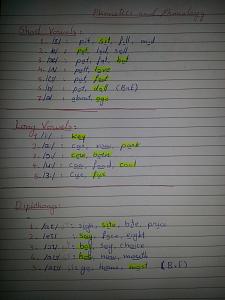 Phonetics and Phonology
Short Vowels:
1. /ɪ/ : pit, sit, fill, mid
2. /e/ : pet, led, sell
3. /æ/ : pat, fat, bat
4. /ʌ/ : putt, love
5. /ʊ/ : put, foot
6. /ɒ/ : pot, doll (BrE)
7. /ə/ : about, ago
Long Vowels:
1. /iː/ : key
2. /ɑː/ : car, park
3. /ɔː/ : core, born
4. /uː/ : food, cool
5. /ɜː/ : fur
Dipthongs:
1. /aɪ/ : sigh, bite, price
2. /eɪ/ : say, face, eight
3. /ɔɪ/ : boy, choice
4. /aʊ/ : now, mouth
5. /əʊ/ : go, home, most (BrE)